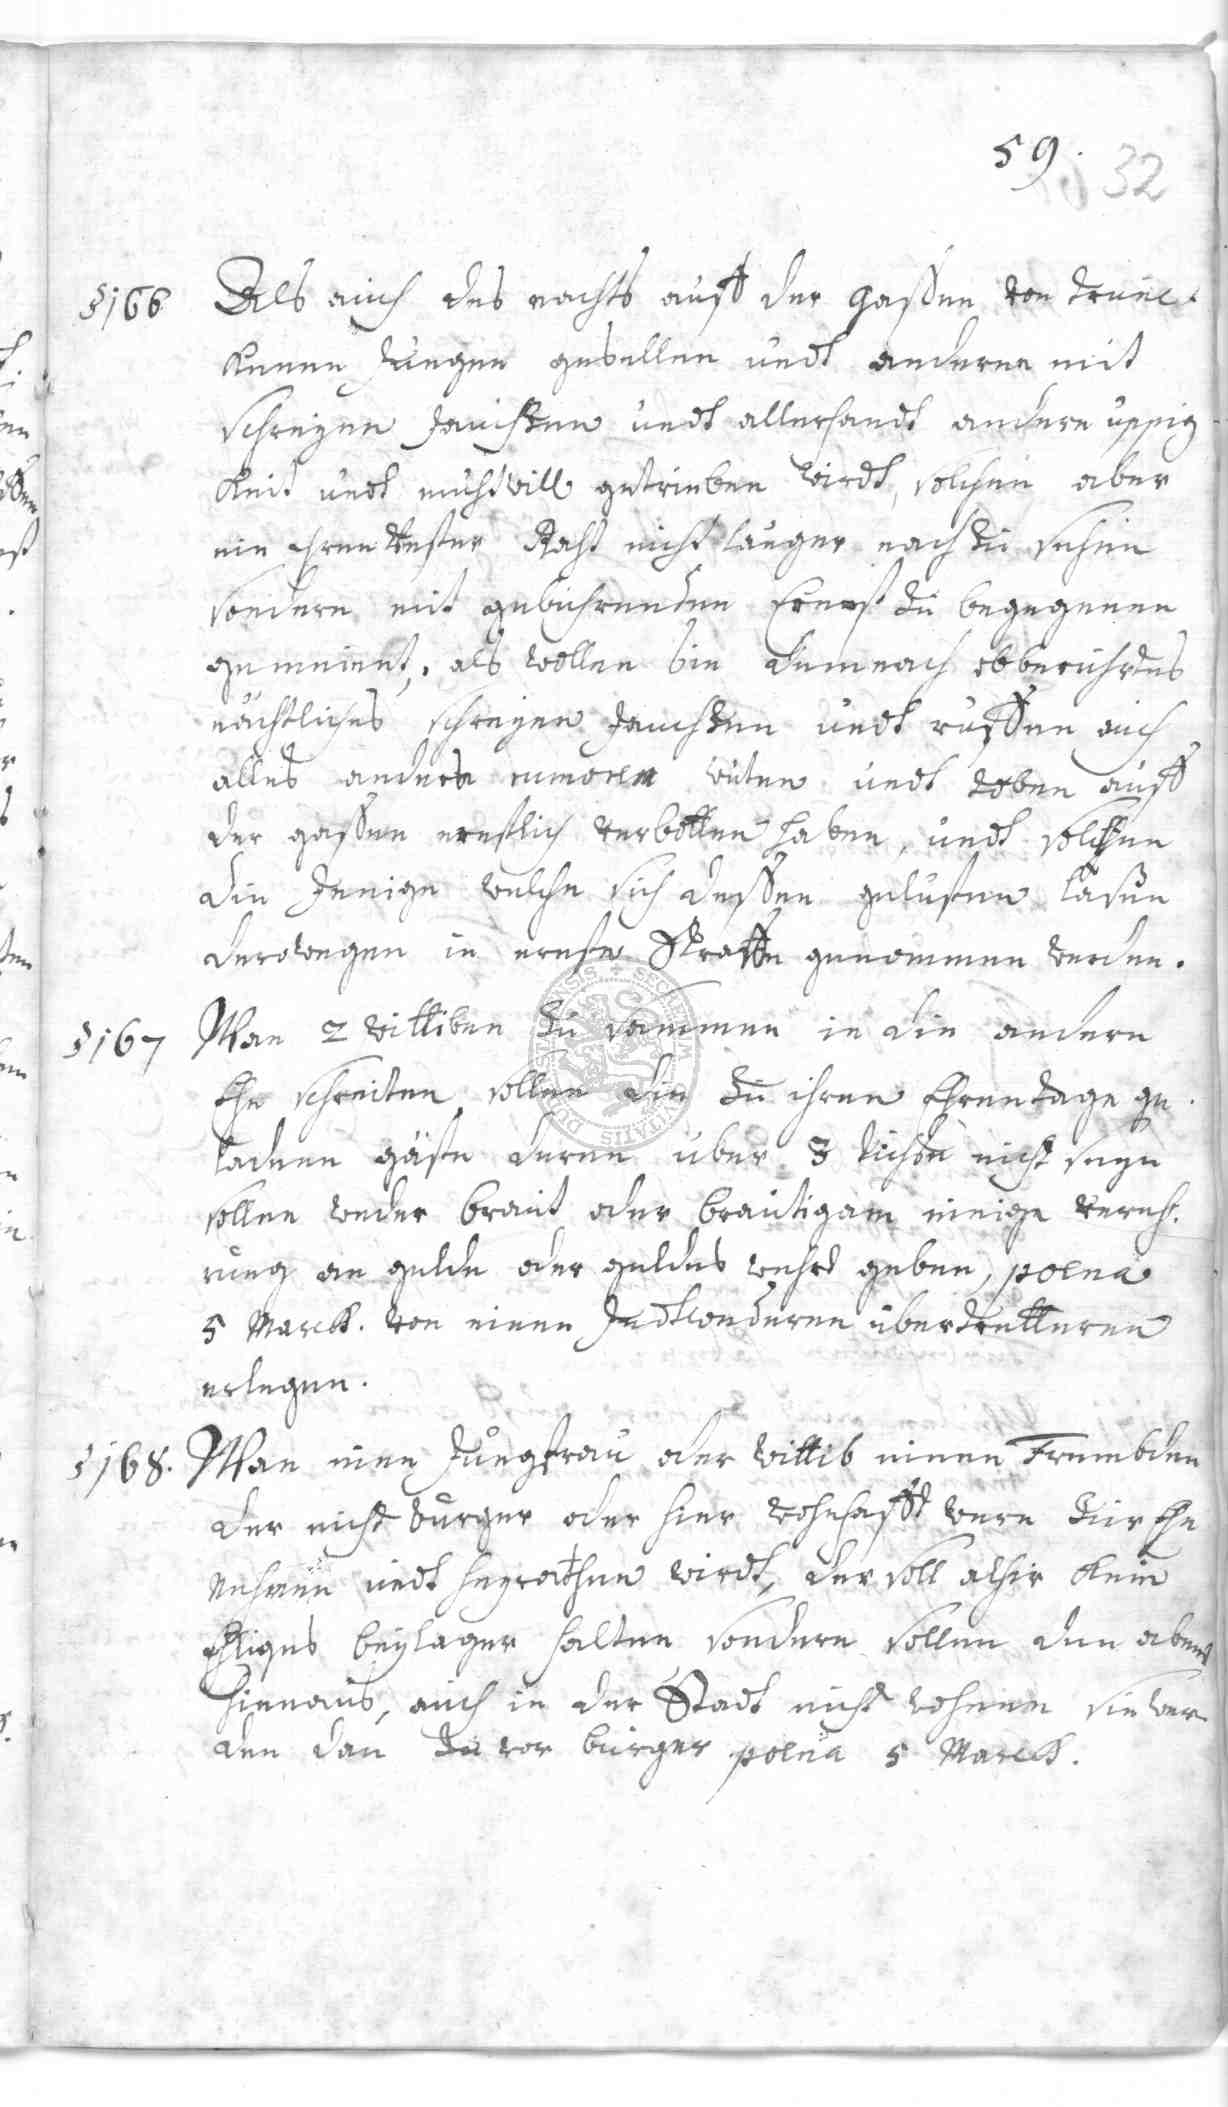 59. 32
§166 Als auch des nachts auff der gassen von trunc-
kenen Jungen gesellen undt anderen mit
schreyen Jauchzen undt allerhandt andere uppig
keit undt muhtwill getrieben wirdt, solchem aber
ein Ehrenvester Raht nicht länger nach zu sehen
sondern mit gebührenden Ernst zu begegnen
gemeinet, als wollen sie demnach obberührtes
nächtliches schreyen Jauchzen undt ruffen auch
alles anders rumoren wüten undt toben auff
der gassen ernstlich verbotten haben, undt sollen
die Jenige welche sich dessen gelüsten lassen
derowegen in ernste Straffe genommen werden.
§167 Wan 2 wittiben zu sammen in die andere
Ehe schreiten sollen die zu ihren Ehrentage ge-
ladene gäste deren über 3 tische nicht seyn
sollen weder braut oder bräutigam einige vereh-
rung an gelde oder geldes wehrt geben, poena
5 Marck. von einen Jedtwederen übertretteren
erlegen.
§168. Wan eine Jungfrau oder wittib einen Frembden
der nicht bürger oder hier wohnhafft were zur Ehe
nehmen undt heyrathen wirdt, der soll alhir kein
Ehliges beylager halten sondern sollen den abend
hienaus, auch in der Stadt nicht wohnen sie wer-
den dan zu vor bürger poena 5 Marck.